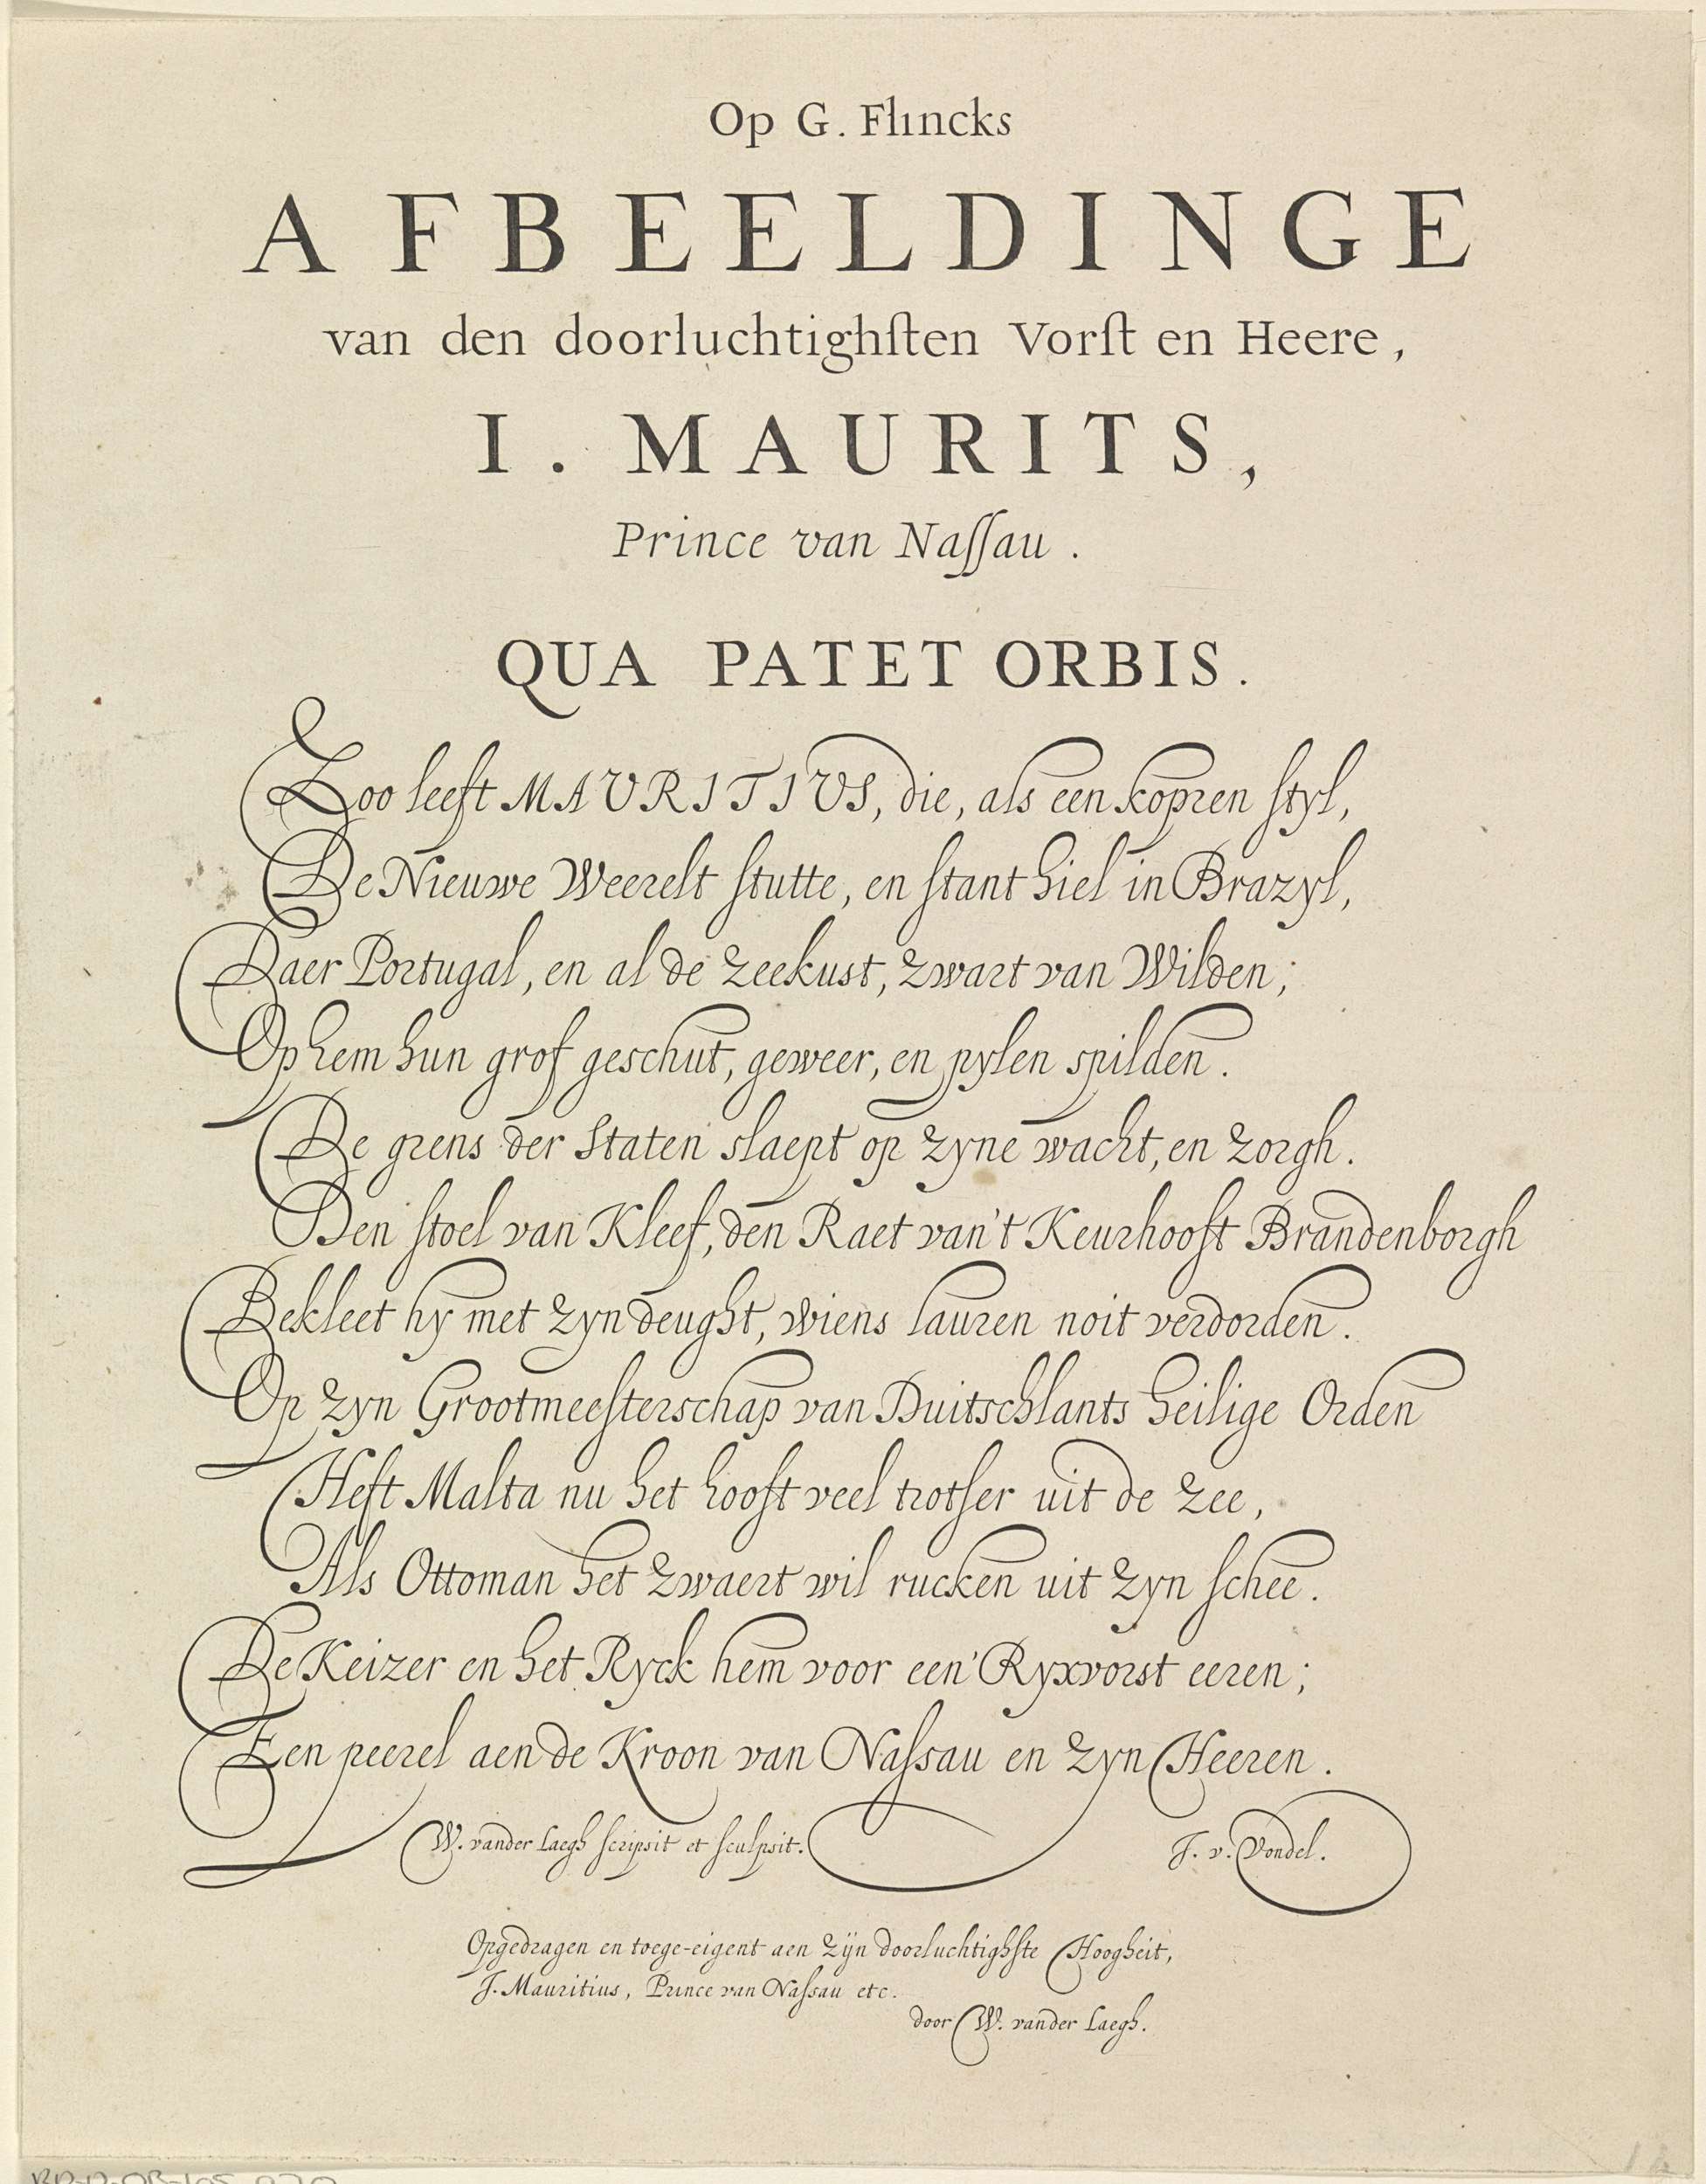 Op G. Flincks
AFBEELDINGE
van den doorluchtighſten Vorſt en Heere,
I. MAURITS,
Prince van Naſſau.
QUA PATET ORBIS.
Zoo leeft MAVRITIVS, die, als een kopren ſtyl,
De Nieuwe Weerelt ſtutte, en ſtant hiel in Brazyl,
Daer Portugal, en al de zeekust, zwart van Wilden;
Op hem hun grof geschut, geweer, en pylen spilden.
De grens der Staten slaept op zyne wacht, en zorgh.
Den ſtoel van Kleef, den Raet van't Keurhooft Brandenborgh
Bekleet hy met zyn deught, wiens lauren noit verdorden.
Op zyn Grootmeeſterschap van Duitschlants heilige Orden
Heft Malta nu het hooft veel trotſer uit de zee,
Als Ottoman het zwaert wil rucken uit zyn ſchee.
De Keizer en het Ryck hem voor een' Ryxvorst eeren;
Een peerel aen de Kroon van Naſsau en zyn Heeren.
W. vander Laegh ſcripsit et ſculpsit.
J. v. Vondel.
Opgedragen en toege-eigent aen zijn doorluchtighſte Hoogheit,
J. Mauritius, Prince van Naſsau etc.
door W. vander Laegh.